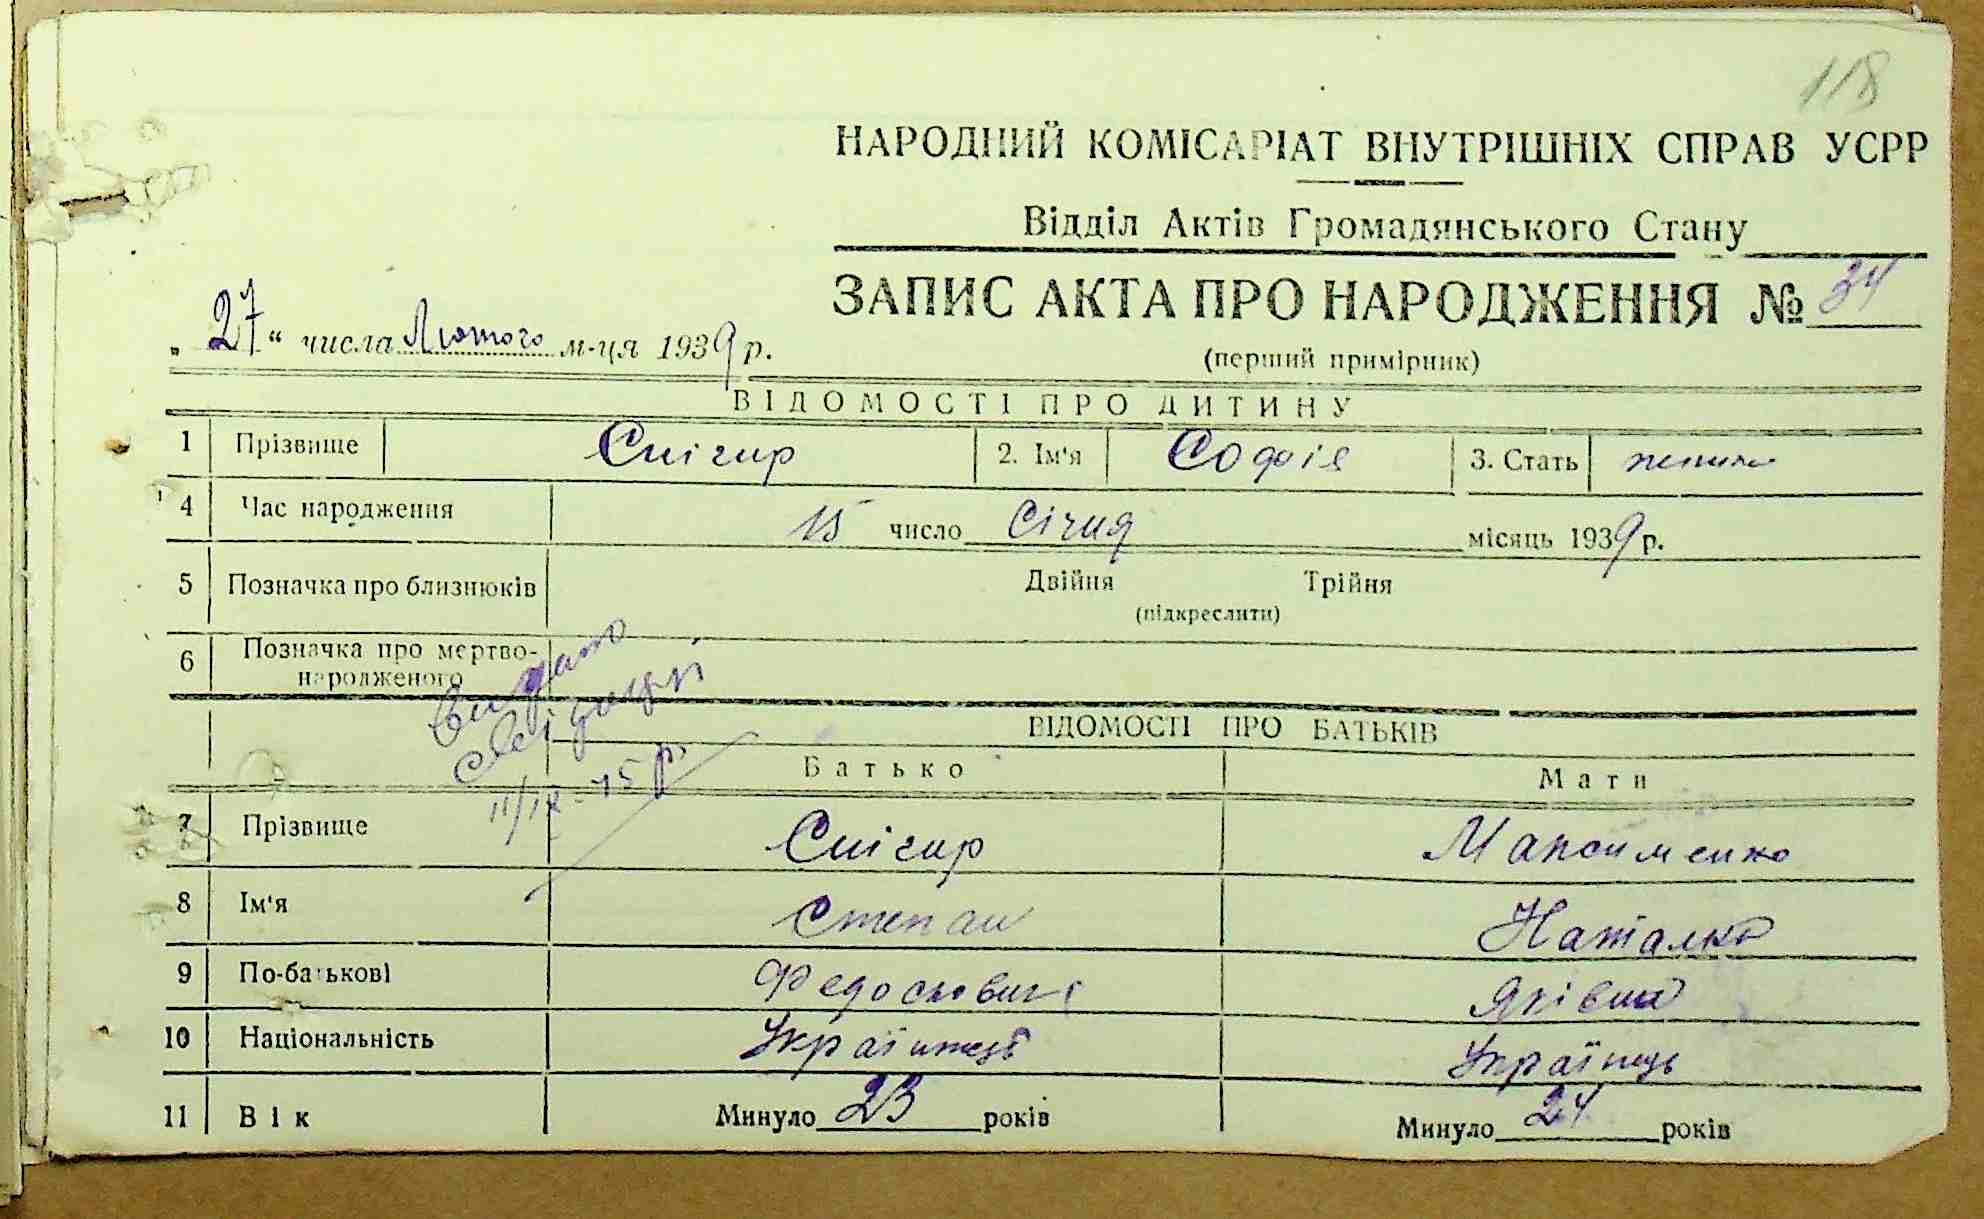 118
НАРОДНИЙ КОМІСАРІАТ ВНУТРІШНІХ СПРАВ УСРР
Відділ Актів Громадянського Стану
ЗАПИС АКТА ПРО НАРОДЖЕННЯ № 34
„27“ числа Лютого м-ця 1939 р.
(перший примірник)
ВІДОМОСТІ ПРО ДИТИНУ
1 Прізвище Снігир 2. Ім'я Софія 3. Стать
4 Час народження 15 число Січня місяць 1939 р.
5 Позначка про близнюків Двійня Трійня
(підкреслити)
6 Позначка про мертво-
народженого
видано
ВІДОМОСТІ ПРО БАТЬКІВ
Батько Мати
7 Прізвище Снігир Максименко
8 Ім'я Степан Наталка
9 По-батькові Федоскович Яківна
10 Національність Українець Українець
11 Вік Минуло 23 років Минуло 24 років